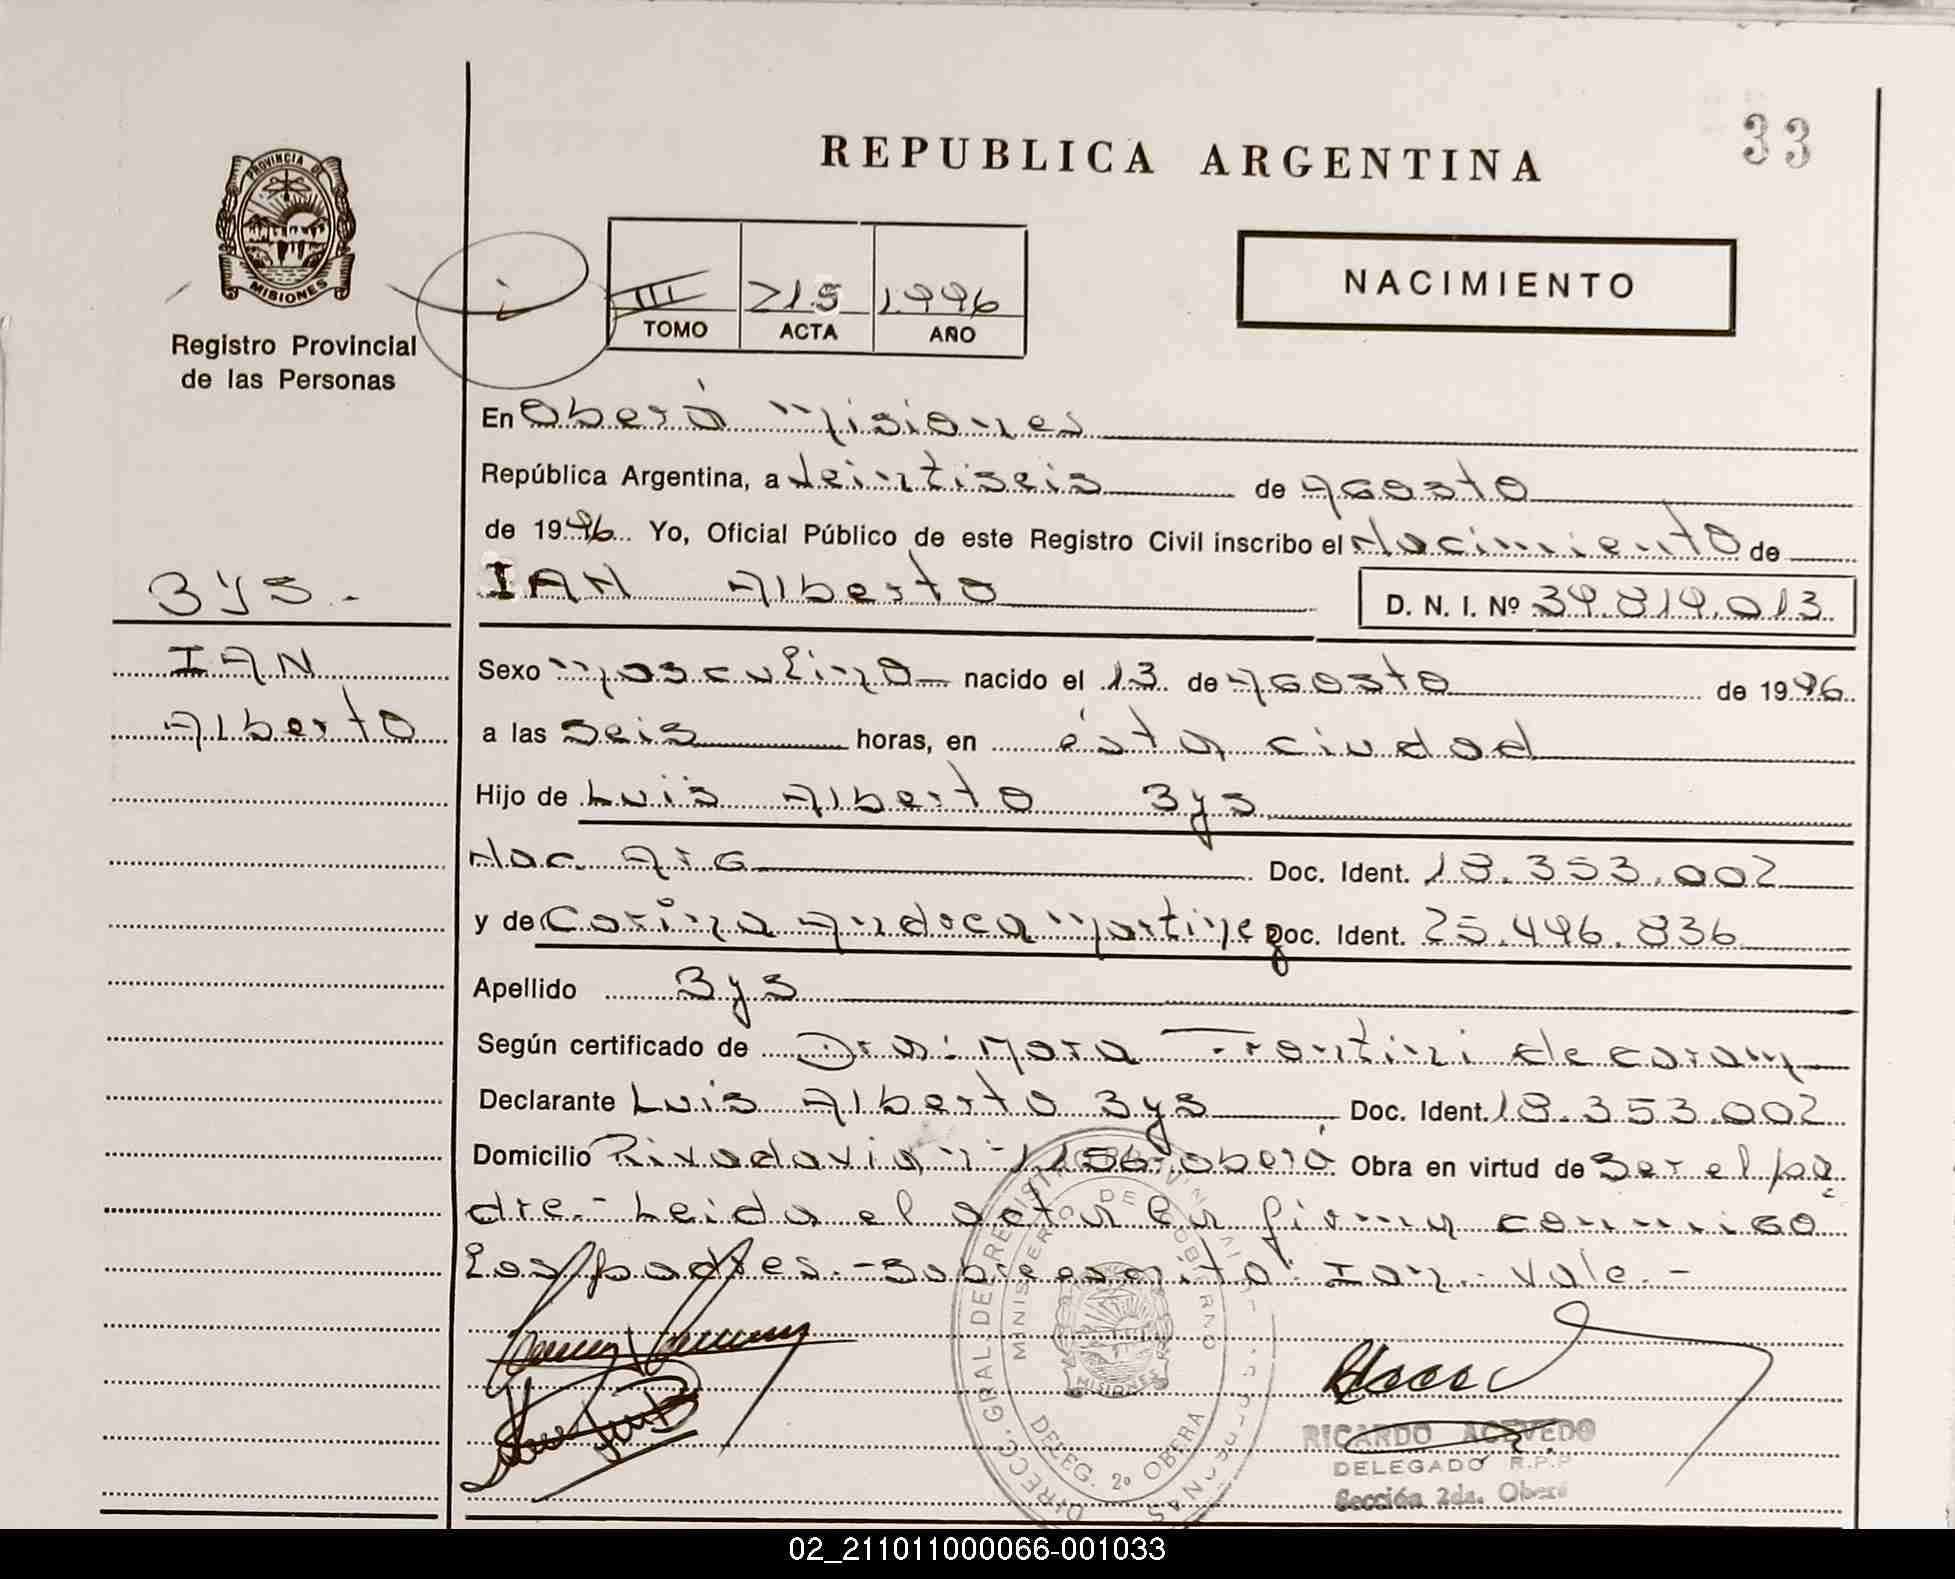 REPUBLICA ARGENTINA
33
PROVINCIA DE
MISIONES
Registro Provincial
de las Personas
III 215 1996
TOMO ACTA AÑO
NACIMIENTO
En Oberá Misiones
República Argentina, a veintiseis de Agosto
de 1996 Yo, Oficial Público de este Registro Civil inscribo el Nacimiento de
IAN Alberto D. N. I. Nº 39.819.013
Bys.-
IAN
Alberto
Sexo Masculino nacido el 13 de Agosto de 1996
a las seis horas, en ésta ciudad
Hijo de Luis Alberto Bys
Nac. Arg Doc. Ident. 18.353.002
y de Corina Martinez Doc. Ident. 25.496.836
Apellido Bys
Según certificado de Dra: Mora Frontini de
Declarante Luis Alberto Bys Doc. Ident. 18.353.002
Domicilio Rivadavia nº 1156-Oberá Obra en virtud de Ser el pa
dre.- Leida el acta la firman conmigo
los padres.-Sobreescrito: Ian. Vale.-
DIRECC. GRAL. DE REGISTRO
MINISTERIO DE GOBIERNO
MISIONES
DELEG. 2º OBERA
RICARDO ACEVEDO
DELEGADO R.P.P
Sección 2da. Oberá
02_211011000066-001033